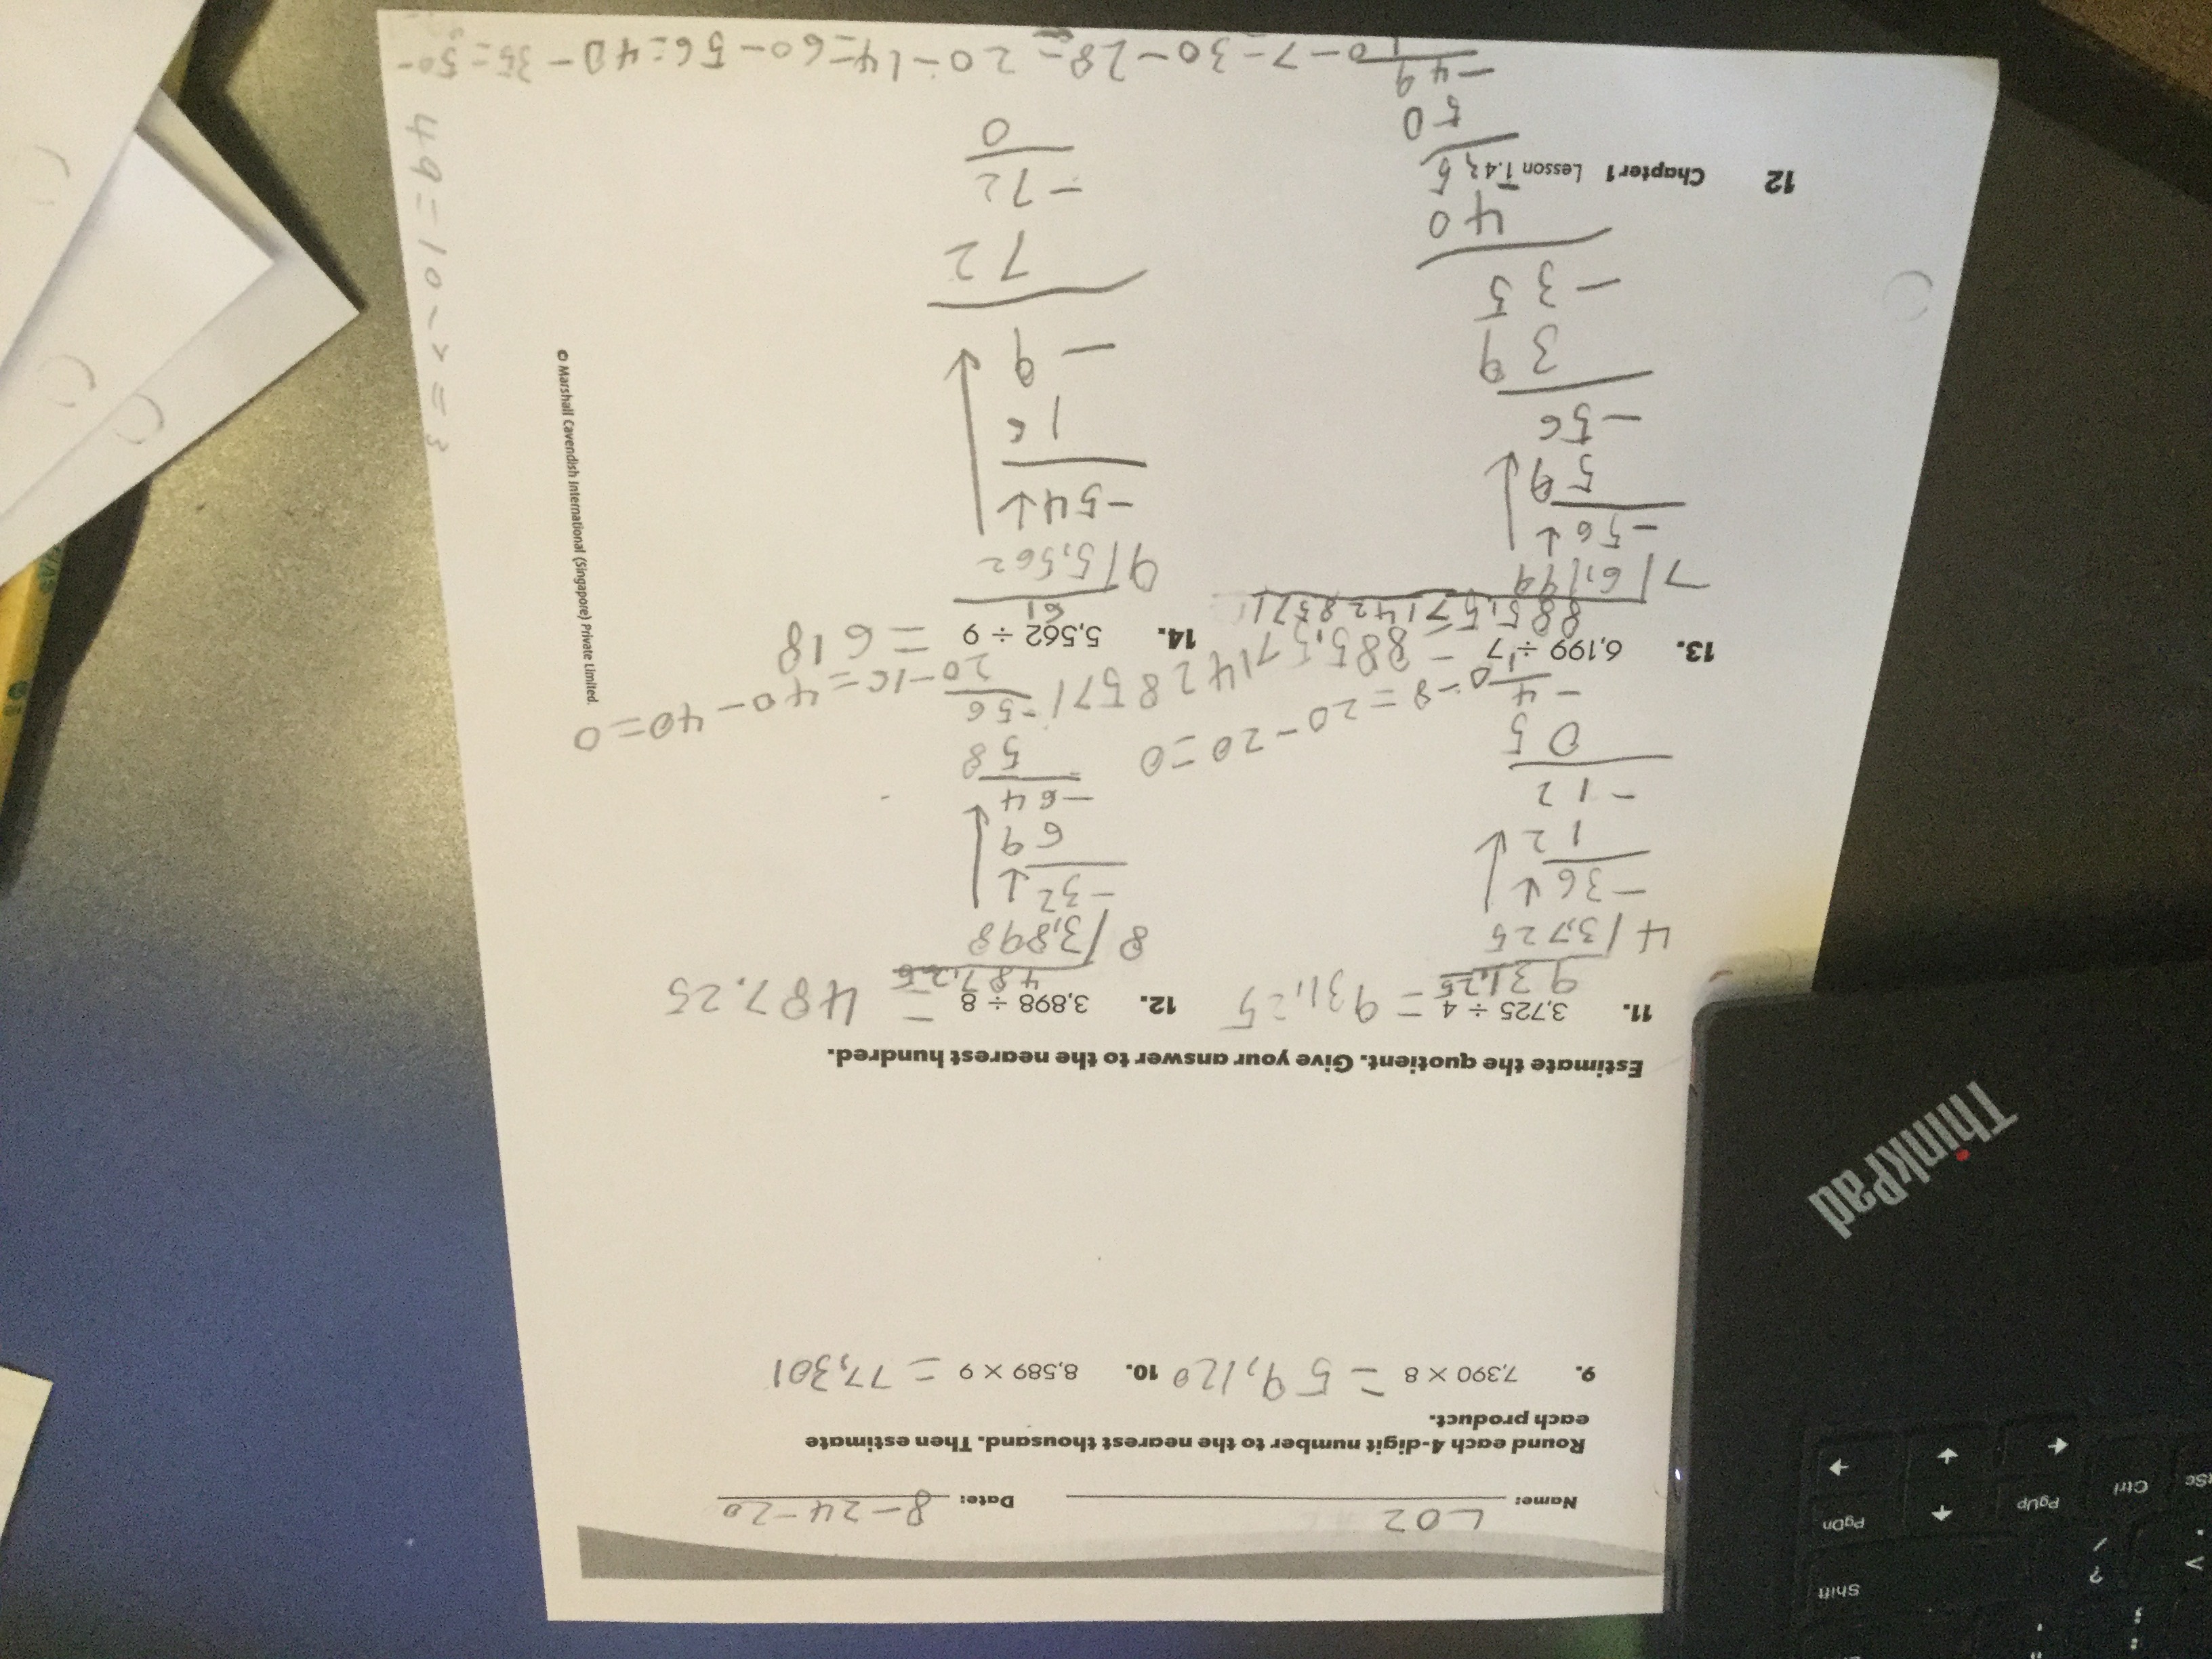 Shift
PgUp
PgDn
Ctrl
ThinkPad
Name: LOZ Date: 8-24-20
Round each 4-digit number to the nearest thousand. Then estimate
each product.
9. 7,390 × 8 = 59,120 10. 8,589 × 9 = 77,301
Estimate the quotient. Give your answer to the nearest hundred.
11. 3,725 ÷ 4 = 931.25
931.25
4 3,725
-36
12
-12
05
-4
10-8=20-20=0
12. 3,898 ÷ 8 = 487.25
487.25
8 3,898
-32
69
-64
58
-56
20-16=40-40=0
13. 6,199 ÷ 7 = 885.571428571
885.571428571
7 6,199
-56
59
-56
39
-35
40
-35
50
-49
10-7=30-28=20-14=60-56=40-35=50-
49=10-7=3
14. 5,562 ÷ 9 = 618
61
9 5,562
-54
16
-9
72
-72
0
12 Chapter 1 Lesson 1.4
© Marshall Cavendish International (Singapore) Private Limited.